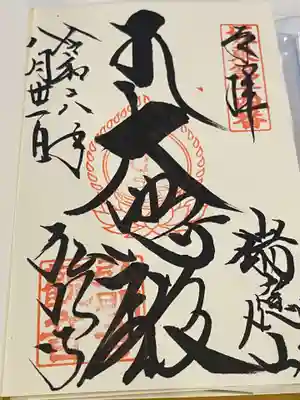 奉拝
大悲殿
瑞應山
弘明寺
令和六年
八月廿一日